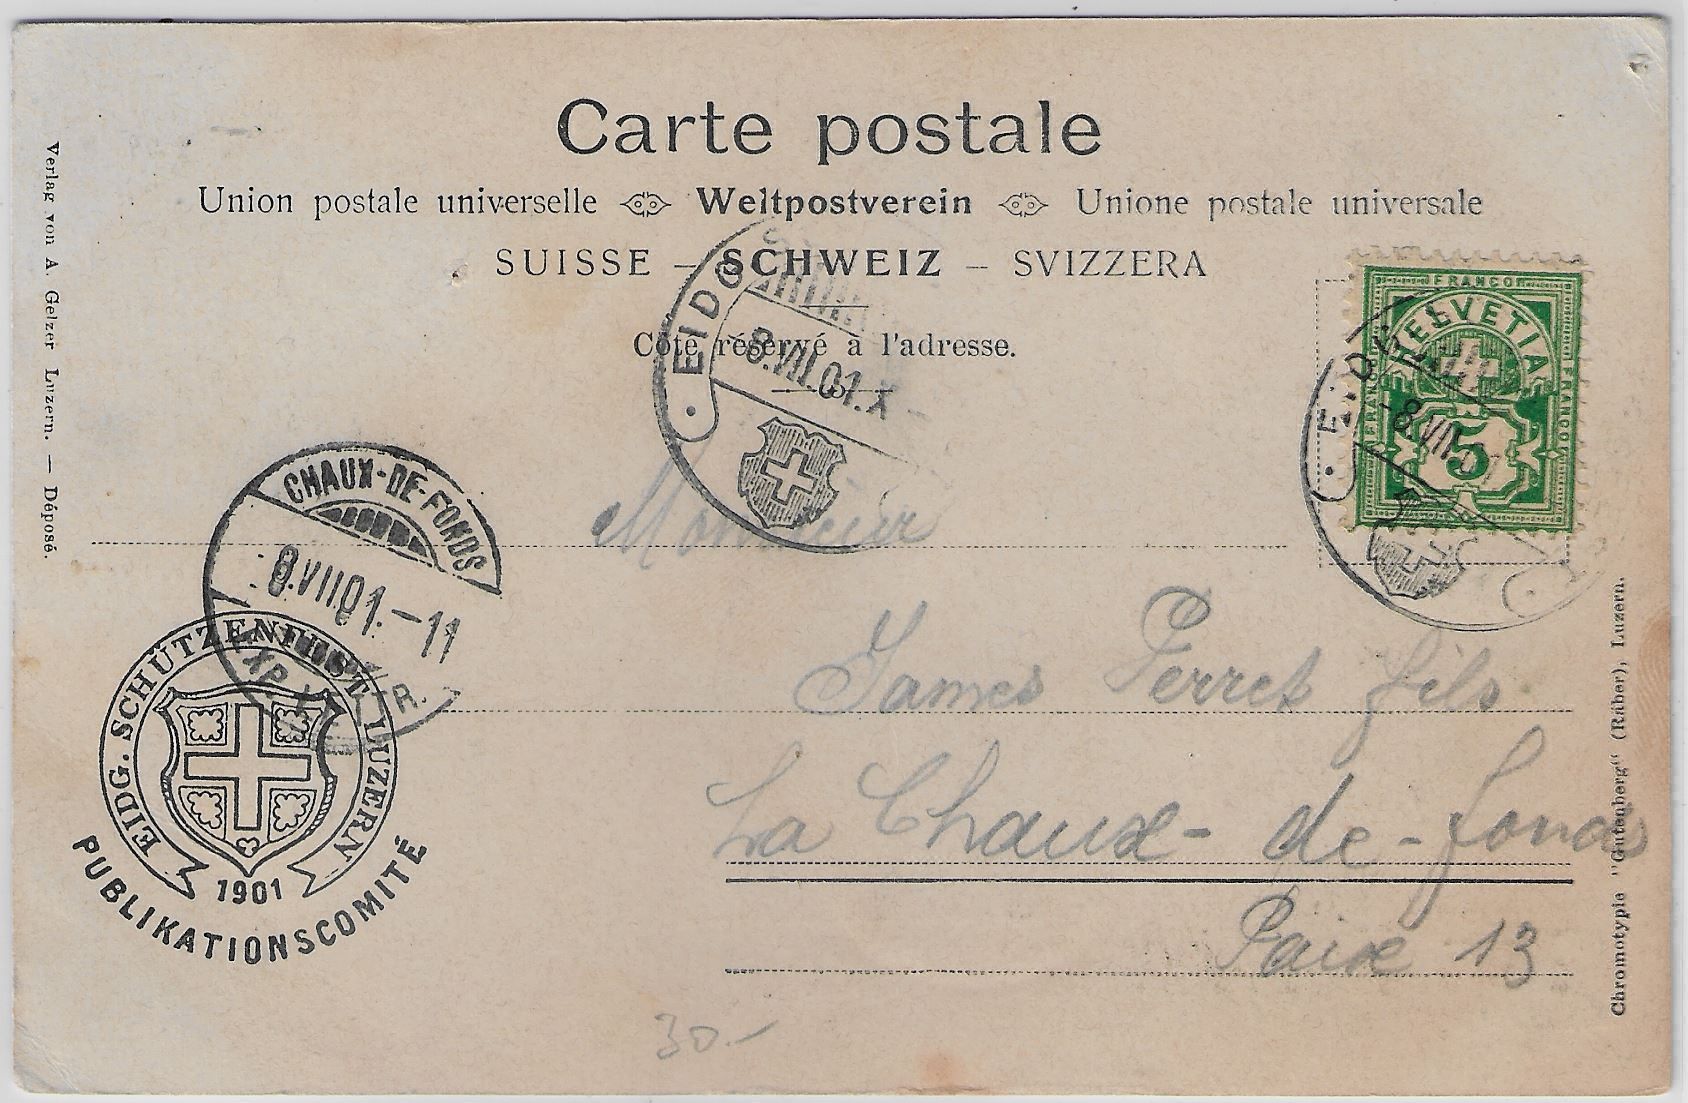 Carte postale
Union postale universelle Weltpostverein Unione postale universale
SUISSE – SCHWEIZ – SVIZZERA
Côté réservé à l'adresse.
Verlag von A. Gelzer Luzern. — Déposé.
EIDG
8.VII.01.X
FRANCO
HELVETIA
FRANCO
FRANCO
5
EIDG
8.VII.0
CHAUX-DE-FONDS
8.VII.01.-11
EIDG. SCHÜTZENFEST LUZERN
1901
PUBLIKATIONSCOMITÉ
Monsieur
James Perret fils
La Chaux-de-fonds
Paix 13
30.-
Chromotypie "Gutenberg" (Räber), Luzern.